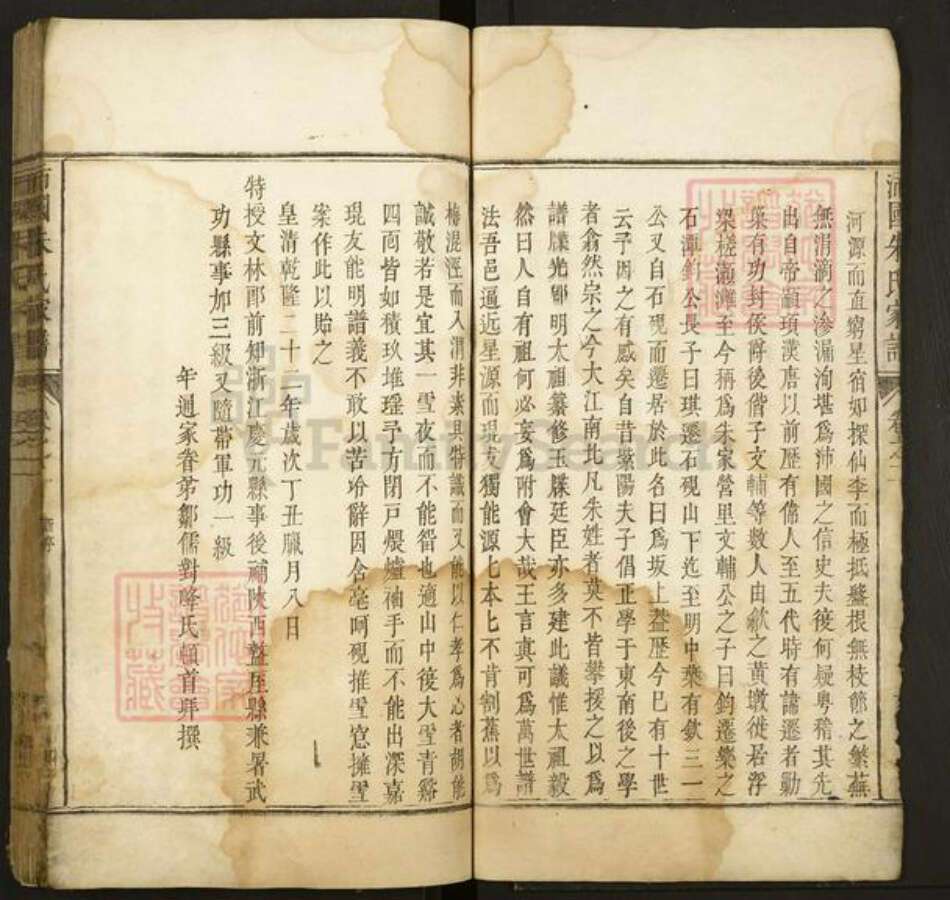 河源而直窮星宿如探仙李而極抵盤根無枝節之繁蕪
無涓滴之滲漏洵堪爲沛國之信史夫復何疑粵稽其先
出自帝顓頊漢唐以前歷有偉人至五代時有諱遷者勦
巢有功封侯爵後偕子文輔等數人由歙之黃墩徙居浮
梁槎灘灘至今稱爲朱家營里文輔公之子曰鈞遷樂之
石潭鈞公長子曰琪遷石硯山下迄至明中葉有欽三一
公又自石硯而遷居於此名曰爲坂上葢歷今已有十世
云予因之有感矣自昔紫陽夫子倡正學于東南後之學
者翕然宗之今大江南北凡朱姓者莫不皆攀援之以爲
譜牒光卽明太祖纂修玉牒廷臣亦多建此議惟太祖毅
然曰人自有祖何必妄爲附會大哉王言真可爲萬世譜
法吾邑逼近星源而現友獨能源七本七不肯割蕉以爲
梅混涇而入渭非素具特識而又能以仁孝爲心者胡能
誠敬若是宜其一雪夜而不能㫺也適山中後大雪青谿
四面皆如積玖堆瑶予方閉戸煨爐袖手而不能出深嘉
現友能明譜義不敢以苦冷辭因含毫呵硯推雪窓擁雪
案作此以貽之
皇清乾隆二十二年歲次丁丑臘月八日
特授文林郎前知浙江慶元縣事後補陝西盩厔縣兼署武
功縣事加三級又隨帶軍功一級
年通家眷弟鄒儒對峰氏頓首拜撰
沛國朱氏家譜
卷之一
FamilySearch